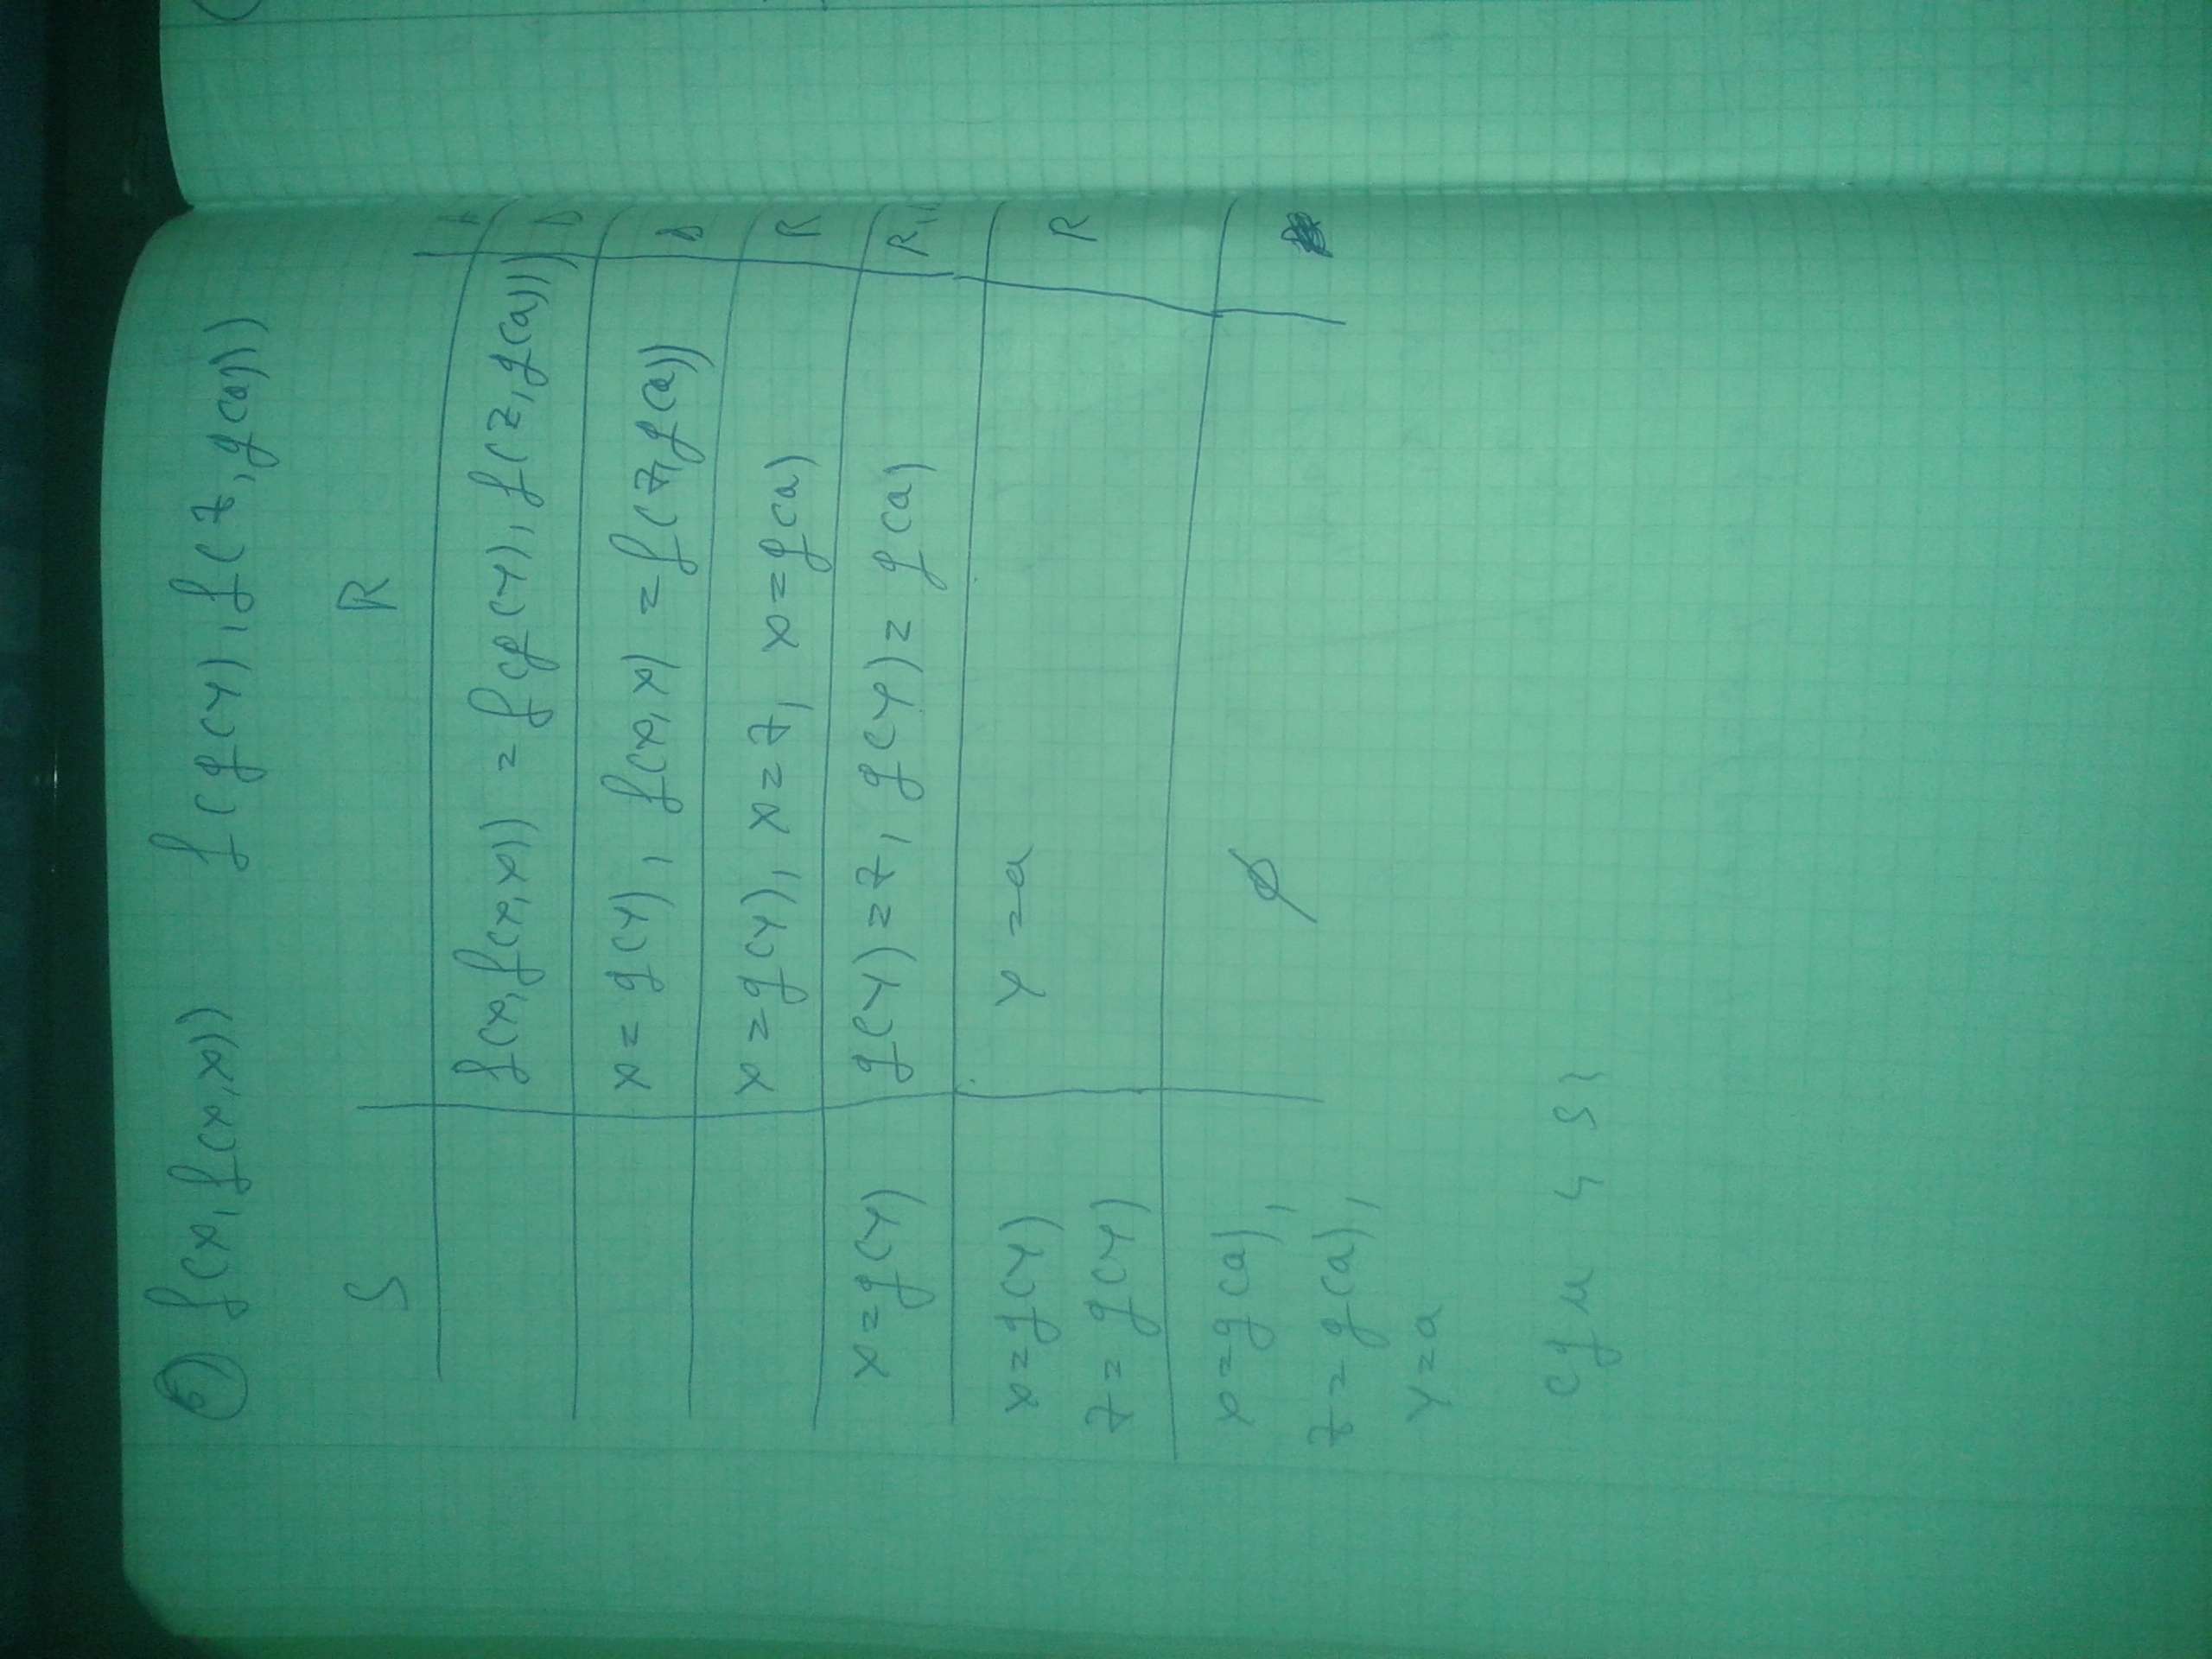 f(x,f(x,x)) f(g(y),f(z,g(a)))
S R
f(x,f(x,x)) = f(g(y),f(z,g(a))) D
x=g(y), f(x,x) = f(z,g(a)) D
x=g(y), x=z, x=g(a) R
x=g(y) g(y)=z, g(y)=g(a) R,
x=g(y) y=a
z=g(y) R
x=g(a), ∅
z=g(a),
y=a